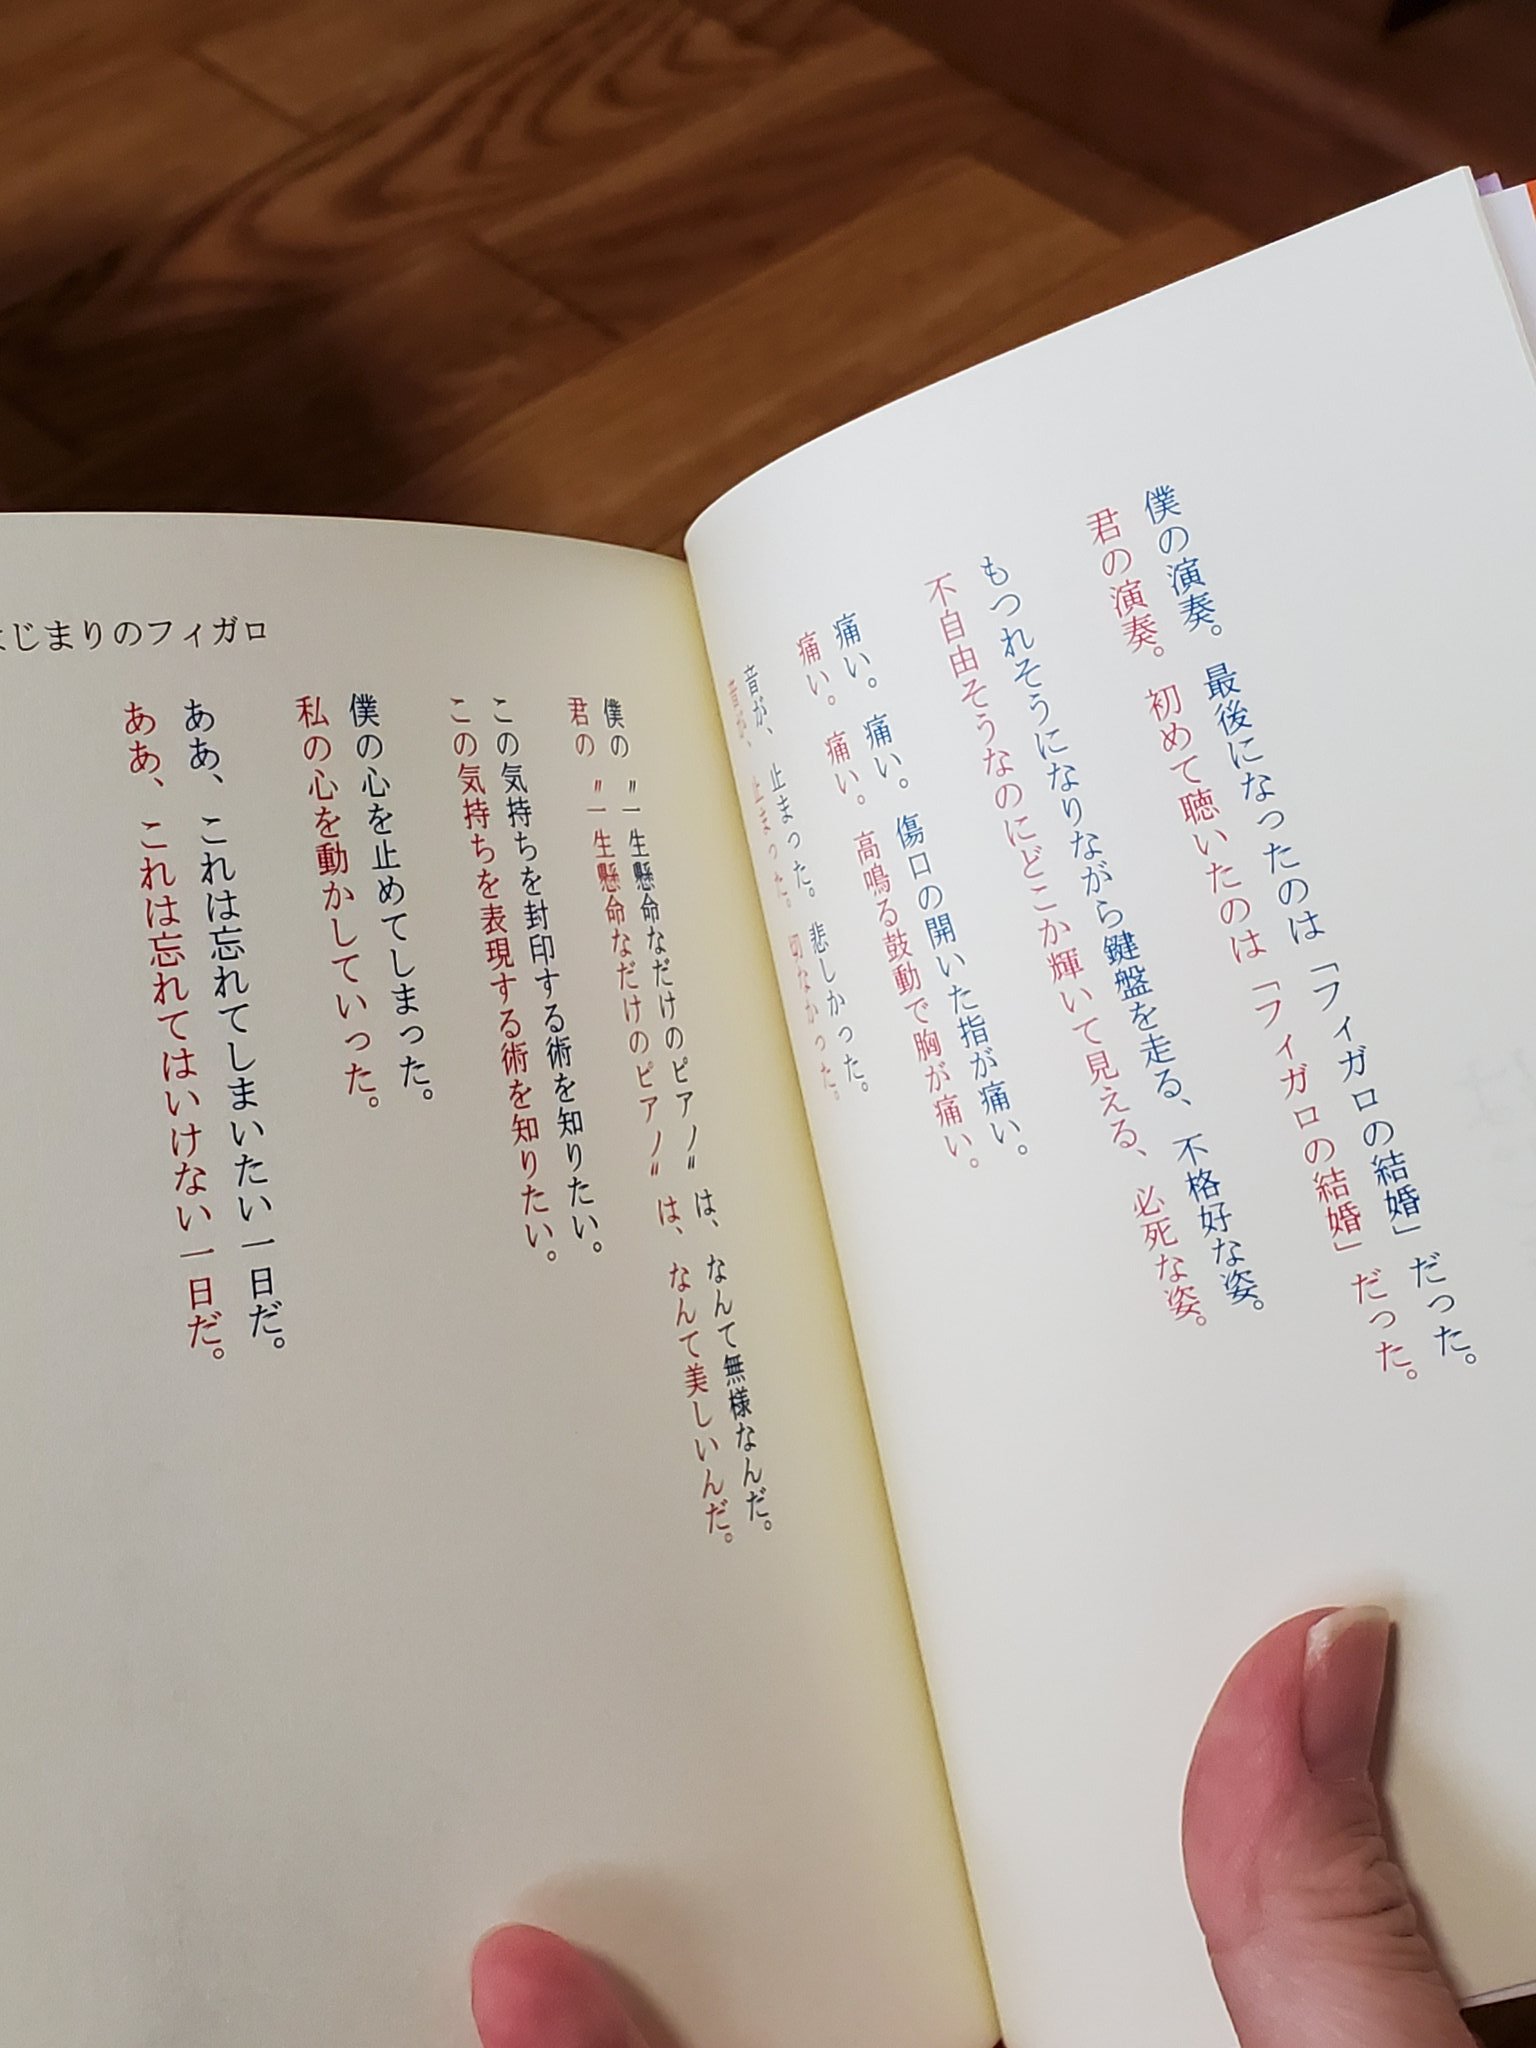 僕の演奏。最後になったのは「フィガロの結婚」だった。
君の演奏。初めて聴いたのは「フィガロの結婚」だった。
もつれそうになりながら鍵盤を走る、不格好な姿。
不自由そうなのにどこか輝いて見える、必死な姿。
痛い。痛い。傷口の開いた指が痛い。
痛い。痛い。高鳴る鼓動で胸が痛い。
音が、止まった。悲しかった。
音が、止まった。切なかった。
僕の〝一生懸命なだけのピアノ〟は、なんて無様なんだ。
君の〝一生懸命なだけのピアノ〟は、なんて美しいんだ。
この気持ちを封印する術を知りたい。
この気持ちを表現する術を知りたい。
僕の心を止めてしまった。
私の心を動かしていった。
ああ、これは忘れてしまいたい一日だ。
ああ、これは忘れてはいけない一日だ。
はじまりのフィガロ